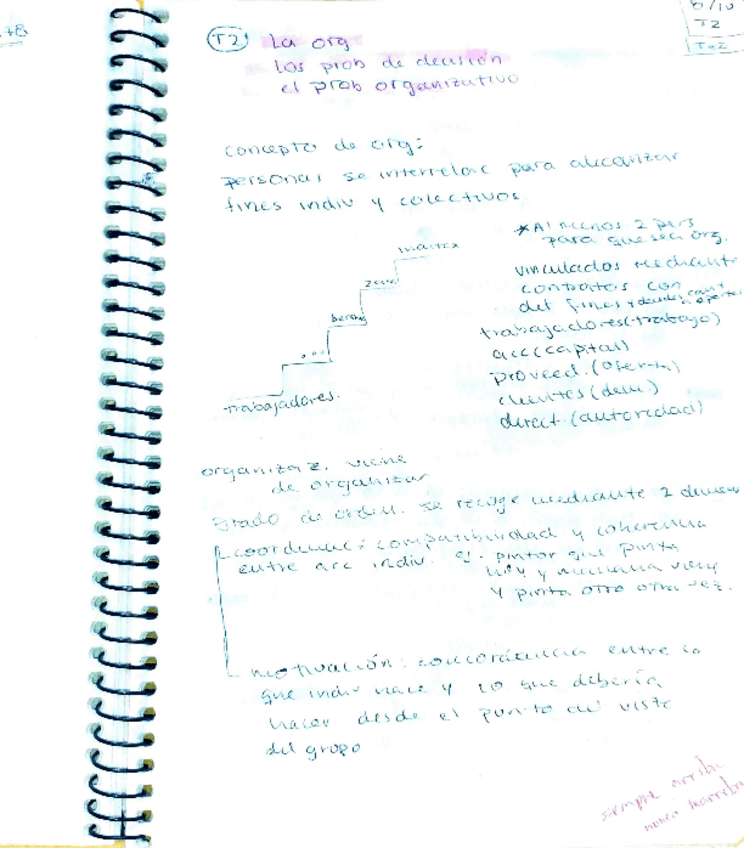 +8
8/10
T2
T2 La org
los prob de decisión
el prob organizativo
concepto de org:
personas se interrelac para alcanzar
fines indiv y colectivos
* Al menos 2 pers
para que sea org.
vinculados mediante
contratos con
det fines y
trabajadores (trabajo)
acc (capital)
proveed. (oferta)
clientes (dem.)
direct. (autoridad)
inditex
zara
bershka
...
trabajadores.
organizaz. viene
de organizar
grado de orden. se recoge mediante 2 dimens
coordinac: compatibilidad y coherencia
entre acc indiv. ej. pintor que pinta
hoy y mañana viene
y pinta otro otra vez.
motivación: concordancia entre lo
que indiv hace y lo que debería
hacer desde el punto de vista
del grupo
siempre arriba
nunca